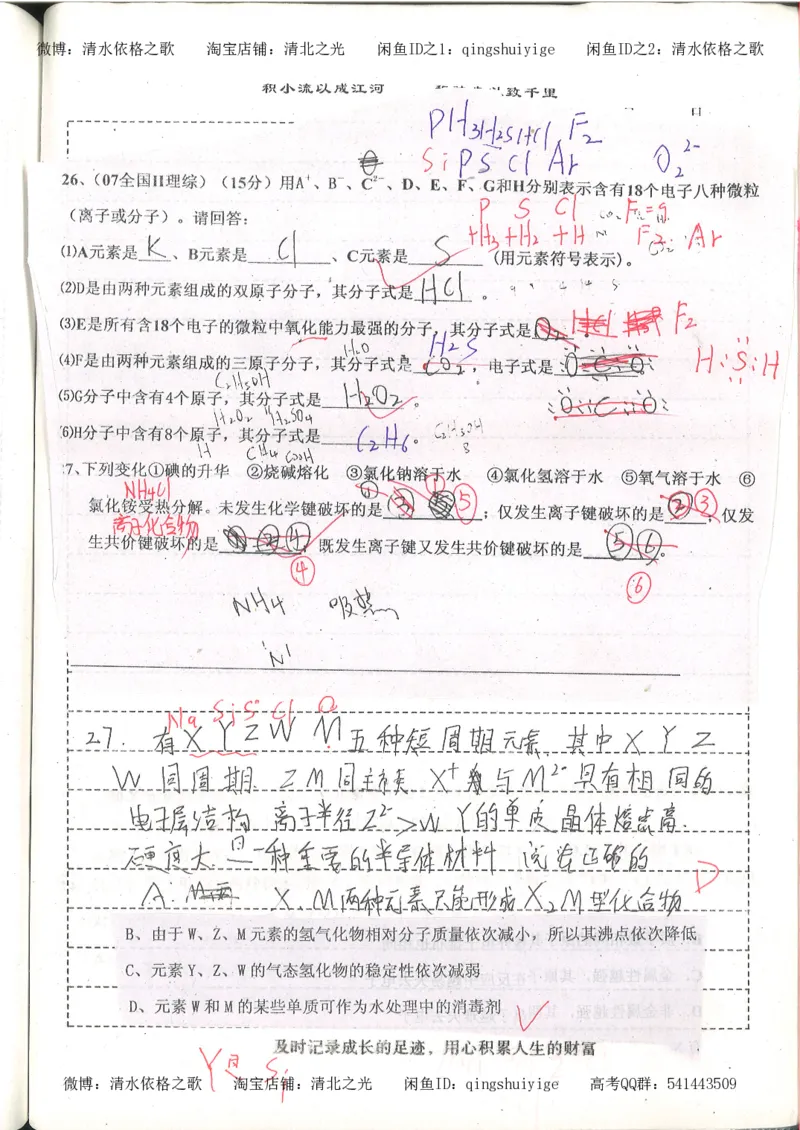 微博：清水依格之歌 淘宝店铺：清北之光 闲鱼ID之1：qingshuiyige 闲鱼ID之2：清水依格之歌
积小流以成江河 致千里
日
PH3 H2S HCl F2
Si P S Cl Ar O2 2-
26、（07全国II理综）（15分）用A⁺、B⁻、C²⁻、D、E、F、G和H分别表示含有18个电子八种微粒
（离子或分子）。请回答：
P S Cl
+H3 +H2 +H F2 Ar
⑴A元素是 K 、B元素是 Cl 、C元素是 S （用元素符号表示）。
⑵D是由两种元素组成的双原子分子，其分子式是 HCl 。
⑶E是所有含18个电子的微粒中氧化能力最强的分子，其分子式是 F2
H2O H2S
⑷F是由两种元素组成的三原子分子，其分子式是 CO2 ，电子式是 H:S:H
C2H5OH
⑸G分子中含有4个原子，其分子式是 H2O2 。
H2O2 H2SO4
⑹H分子中含有8个原子，其分子式是 C2H6 。 C2H5OH
CH4 COOH
7、下列变化①碘的升华 ②烧碱熔化 ③氯化钠溶于水 ④氯化氢溶于水 ⑤氧气溶于水 ⑥
NH4Cl
氯化铵受热分解。未发生化学键破坏的是 ① ⑤ ；仅发生离子键破坏的是 ② ③ ；仅发
离子化合物
生共价键破坏的是 ④ ；既发生离子键又发生共价键破坏的是 ⑤ ⑥ 。
④ ⑥
NH4 吸热
Na Si S Cl O
27. 有 X Y Z W M 五种短周期元素，其中 X Y Z
W 同周期 Z M 同主族 X⁺ 与 M²⁻ 具有相同的
电子层结构 离子半径 Z²⁻ > W Y的单质晶体熔点高
硬度大 是一种重要的半导体材料 说法正确的
A. X、M两种元素只能形成X2M型化合物 D
B、由于 W、Z、M 元素的氢气化物相对分子质量依次减小，所以其沸点依次降低
C、元素 Y、Z、W 的气态氢化物的稳定性依次减弱
D、元素 W 和 M 的某些单质可作为水处理中的消毒剂
及时记录成长的足迹，用心积累人生的财富
Y是 Si
微博：清水依格之歌 淘宝店铺：清北之光 闲鱼ID：qingshuiyige 高考QQ群：541443509